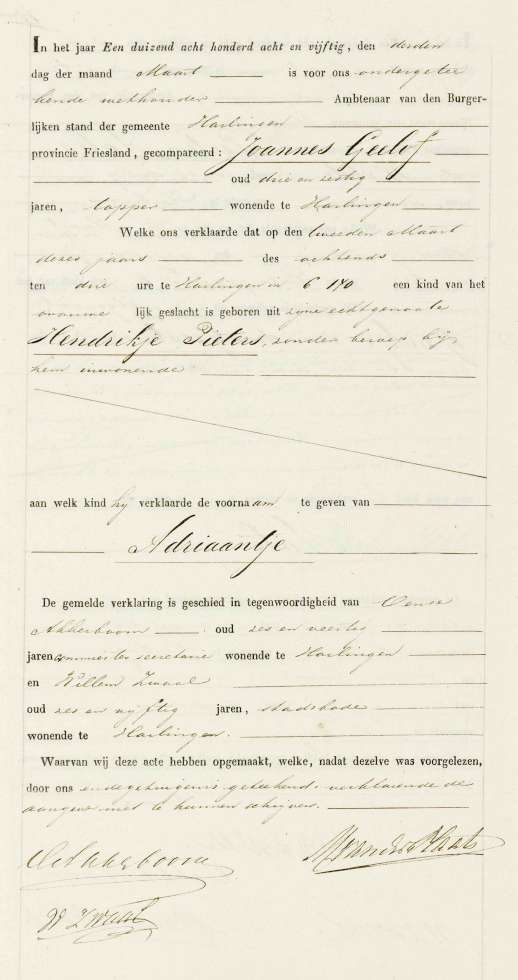 In het jaar Een duizend acht honderd acht en vijftig, den derden
dag der maand Maart is voor ons ondergetee
kende wethouder Ambtenaar van den Burger-
lijken stand der gemeente Harlingen
provincie Friesland, gecompareerd: Joannes Geelof
oud drie en sestig
jaren, tapper wonende te Harlingen
Welke ons verklaarde dat op den tweeden Maart
dezes jaars des ochtends
ten drie ure te Harlingen in 6 170 een kind van het
vrouwe lijk geslacht is geboren uit zijne echtgenoote
Hendrikje Pieters, zonder beroep bij
hem inwonende
aan welk kind hij verklaarde de voornaam te geven van
Adriaantje
De gemelde verklaring is geschied in tegenwoordigheid van
Akkerboom oud zes en veertig
jaren, commies ter secretarie wonende te Harlingen
en Willem Zwaal
oud zes en vijftig jaren, stadsbode
wonende te Harlingen.
Waarvan wij deze acte hebben opgemaakt, welke, nadat dezelve was voorgelezen,
door ons en de getuigen is geteekend, verklarende de
aangever niet te kunnen schrijven.
Akkerboom
W Zwaal